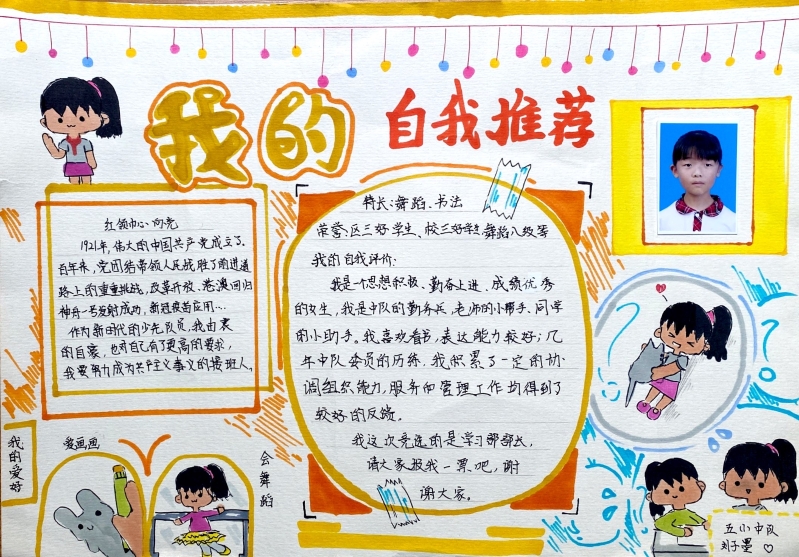 我的
自我推荐
红领巾心向党
1921年,伟大的中国共产党成立了.
百年来,党团结带领人民战胜了前进道
路上的重重挑战,改革开放、港澳回归
神舟一号发射成功,新冠疫苗应用...
作为新时代的少先队员,我由衷
的自豪,也对自己有了更高的要求,
我要努力成为共产主义事业的接班人.
特长:舞蹈、书法
荣誉:区三好学生、校三好学生 舞蹈八级等
我的自我评价:
我是个思想积极、勤奋上进、成绩优秀
的女生,我是中队的勤务兵,老师的小帮手、同学
的小助手。我喜欢看书,表达能力较好;几
年中队委员的历练,我积累了一定的协
调组织能力,服务和管理工作均得到了
较好的反馈。
我这次竞选的是学习部部长,
请大家投我一票吧,谢
谢大家。
我的爱好
爱画画
会舞蹈
五(1)中队